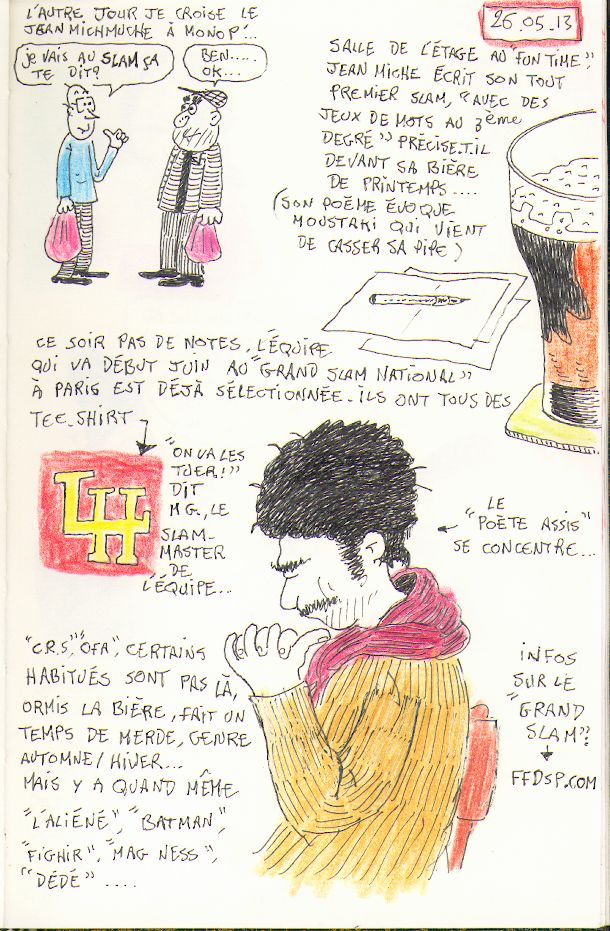 L'AUTRE JOUR JE CROISE LE
JEAN MICHMUCHE À MONOP'...
je VAIS AU SLAM ÇA
TE DIT?
BEN.....
OK...
26.05.13
SALLE DE L'ÉTAGE AU "FUN TIME",
JEAN MICHE ÉCRIT SON TOUT
PREMIER SLAM, "AVEC DES
JEUX DE MOTS AU 3ème
DEGRÉ" PRÉCISE.T.IL
DEVANT SA BIÈRE
DE PRINTEMPS....
(SON POÈME ÉVOQUE
MOUSTAKI QUI VIENT
DE CASSER SA PIPE)
CE SOIR PAS DE NOTES, L'ÉQUIPE
QUI VA DÉBUT JUIN AU "GRAND SLAM NATIONAL"
À PARIS EST DÉJÀ SÉLECTIONNÉE. ILS ONT TOUS DES
TEE.SHIRT
LH
"ON VA LES
TUER!"
DIT
M.G., LE
SLAM-
MASTER
DE
L'ÉQUIPE...
LE
"POÈTE ASSIS"
SE CONCENTRE...
"C.R.S", "OFA", CERTAINS
HABITUÉS SONT PAS LÀ,
ORMIS LA BIÈRE, FAIT UN
TEMPS DE MERDE, GENRE
AUTOMNE/HIVER...
MAIS Y A QUAND MÊME
"L'ALIÉNÉ", "BATMAN",
"FIGHIR", "MAG NESS",
"DÉDÉ"....
INFOS
SUR LE
"GRAND
SLAM"?
FFDSP.COM